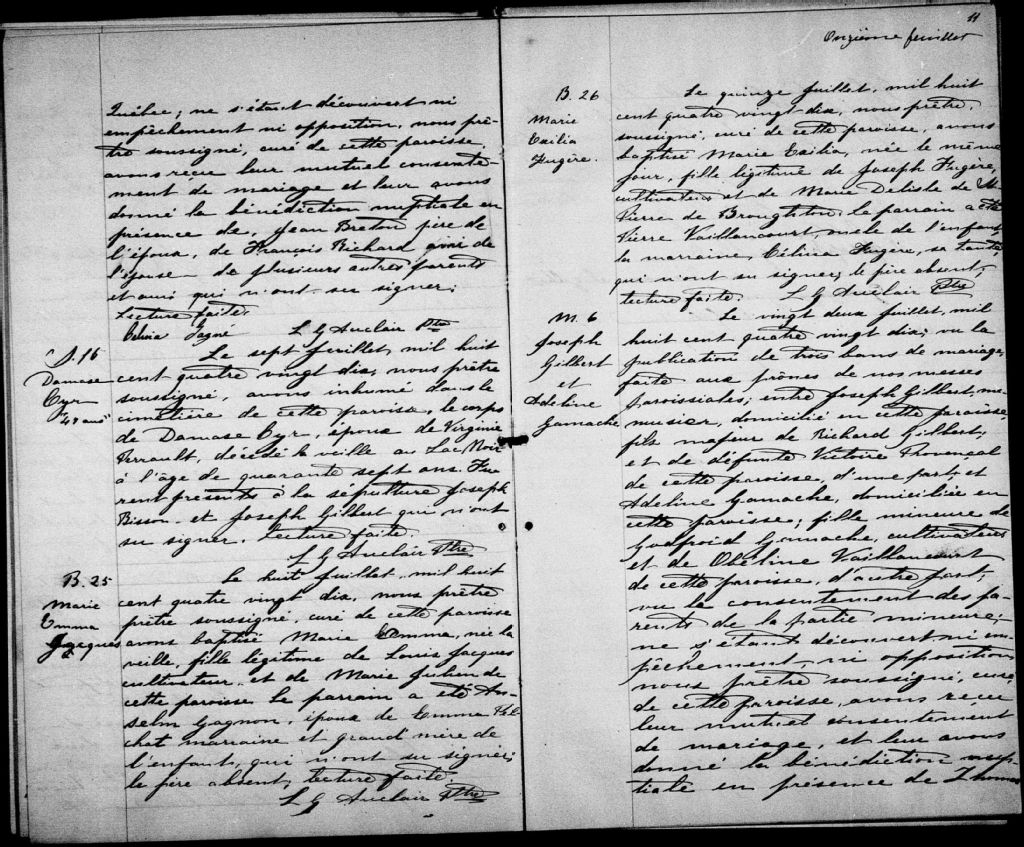 Québec; ne s'étant découvert ni
empêchement ni opposition, nous prê-
tre soussigné, curé de cette paroisse,
avons reçu leur mutuel consente-
ment de mariage et leur avons
donné la bénédiction nuptiale en
présence de, Jean Breton père de
l'époux, de François Richard ami de
l'épouse de plusieurs autres parents
et amis qui n'ont su signer.
Lecture faite.
Célina Gagné L G Auclair Ptre
S. 16
Damase
Cyr
47 ans
Le sept juillet, mil huit
cent quatre vingt dix, nous prêtre
soussigné, avons inhumé dans le
cimetière de cette paroisse, le corps
de Damase Cyr, époux de Virginie
Perrault, décédé la veille au Lac Noir
à l'âge de quarante sept ans. Fu
rent présents à la sépulture Joseph
Bisson et Joseph Gilbert qui n'ont
su signer. Lecture faite.
L G Auclair Ptre
B. 25
Marie
Emma
Jacques
Le huit juillet, mil huit
cent quatre vingt dix, nous prêtre
prêtre soussigné, curé de cette paroisse
avons baptisé Marie Emma, née la
veille, fille légitime de Louis Jacques
cultivateur et de Marie Julien de
cette paroisse. Le parrain a été An-
selm Gagnon, époux de Emma
marraine et grand mère de
l'enfant, qui n'ont su signer;
le père absent, lecture faite.
L G Auclair Ptre
11
Onzième feuillet
B. 26
Marie
Exilia
Fugère.
Le quinze juillet, mil huit
cent quatre vingt dix, nous prêtre,
soussigné, curé de cette paroisse, avons
baptisé Marie Exilia, née le même
jour, fille légitime de Joseph Fugère,
cultivateur et de Marie Delisle de St
Pierre de Broughton, le parrain a été
Pierre Vaillancourt, oncle de l'enfant,
la marraine, Célina Fugère, sa tante,
qui n'ont su signer, le père absent,
lecture faite. L G Auclair Ptre
M. 6
Joseph
Gilbert
et
Adeline
Gamache
Le vingt deux juillet, mil
huit cent quatre vingt dix; vu la
publication de trois bans de mariage,
faite aux prônes de nos messes
paroissiales; entre Joseph Gilbert, me-
nusier, domicilié en cette paroisse,
fils majeur de Richard Gilbert,
et de défunte Victoire Thovençal
de cette paroisse, d'une part, et
Adeline Gamache, domiciliée en
cette paroisse; fille mineure de
Gamache, cultivateur
et de Obéline Vaillancourt
de cette paroisse, d'autre part;
vu le consentement des pa-
rents de la partie mineure;
ne s'étant découvert ni em-
pêchement, ni opposition,
nous prêtre soussigné, curé
de cette paroisse, avons reçu
leur mutuel consentement
de mariage, et leur avons
donné la bénédiction nup-
tiale en présence de Thomas